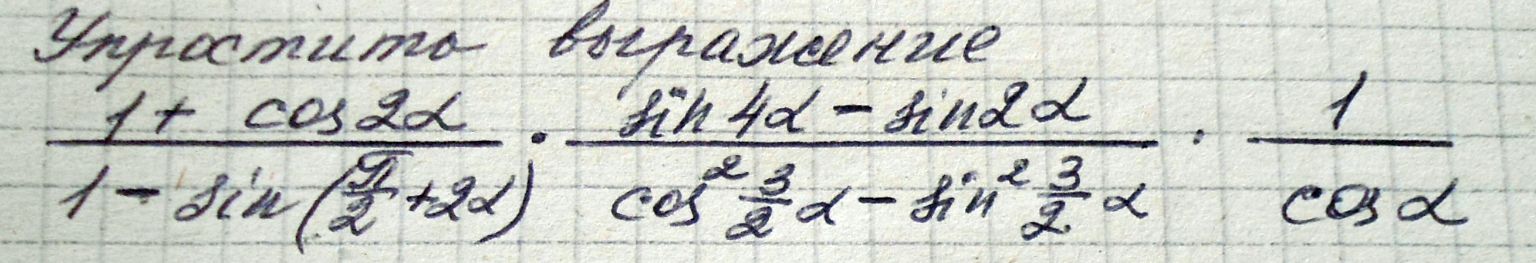 Упростить выражение
\frac{1 + \cos 2\alpha}{1 - \sin(\frac{\pi}{2} + 2\alpha)} \cdot \frac{\sin 4\alpha - \sin 2\alpha}{\cos^2 \frac{3}{2}\alpha - \sin^2 \frac{3}{2}\alpha} \cdot \frac{1}{\cos \alpha}